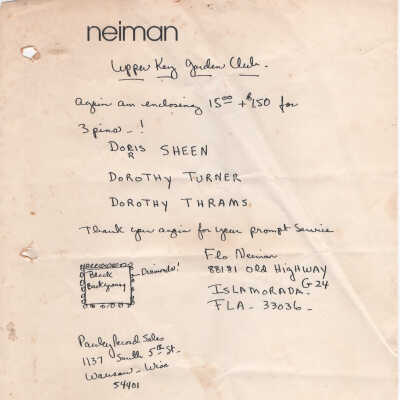 neiman
Upper Key Garden Club.
Again am enclosing 15⁰⁰ + $1.50 for
3 pins - !
DORIS SHEEN
R
DOROTHY TURNER
DOROTHY THRAMS
Thank you again for your prompt service
Flo Neiman
88181 Old Highway
G24
ISLAMORADA -
FLA - 33036 -
Diamonds!
Black
Background
Record Sales
1137 South 5th St -
Wausau - Wisc
54401